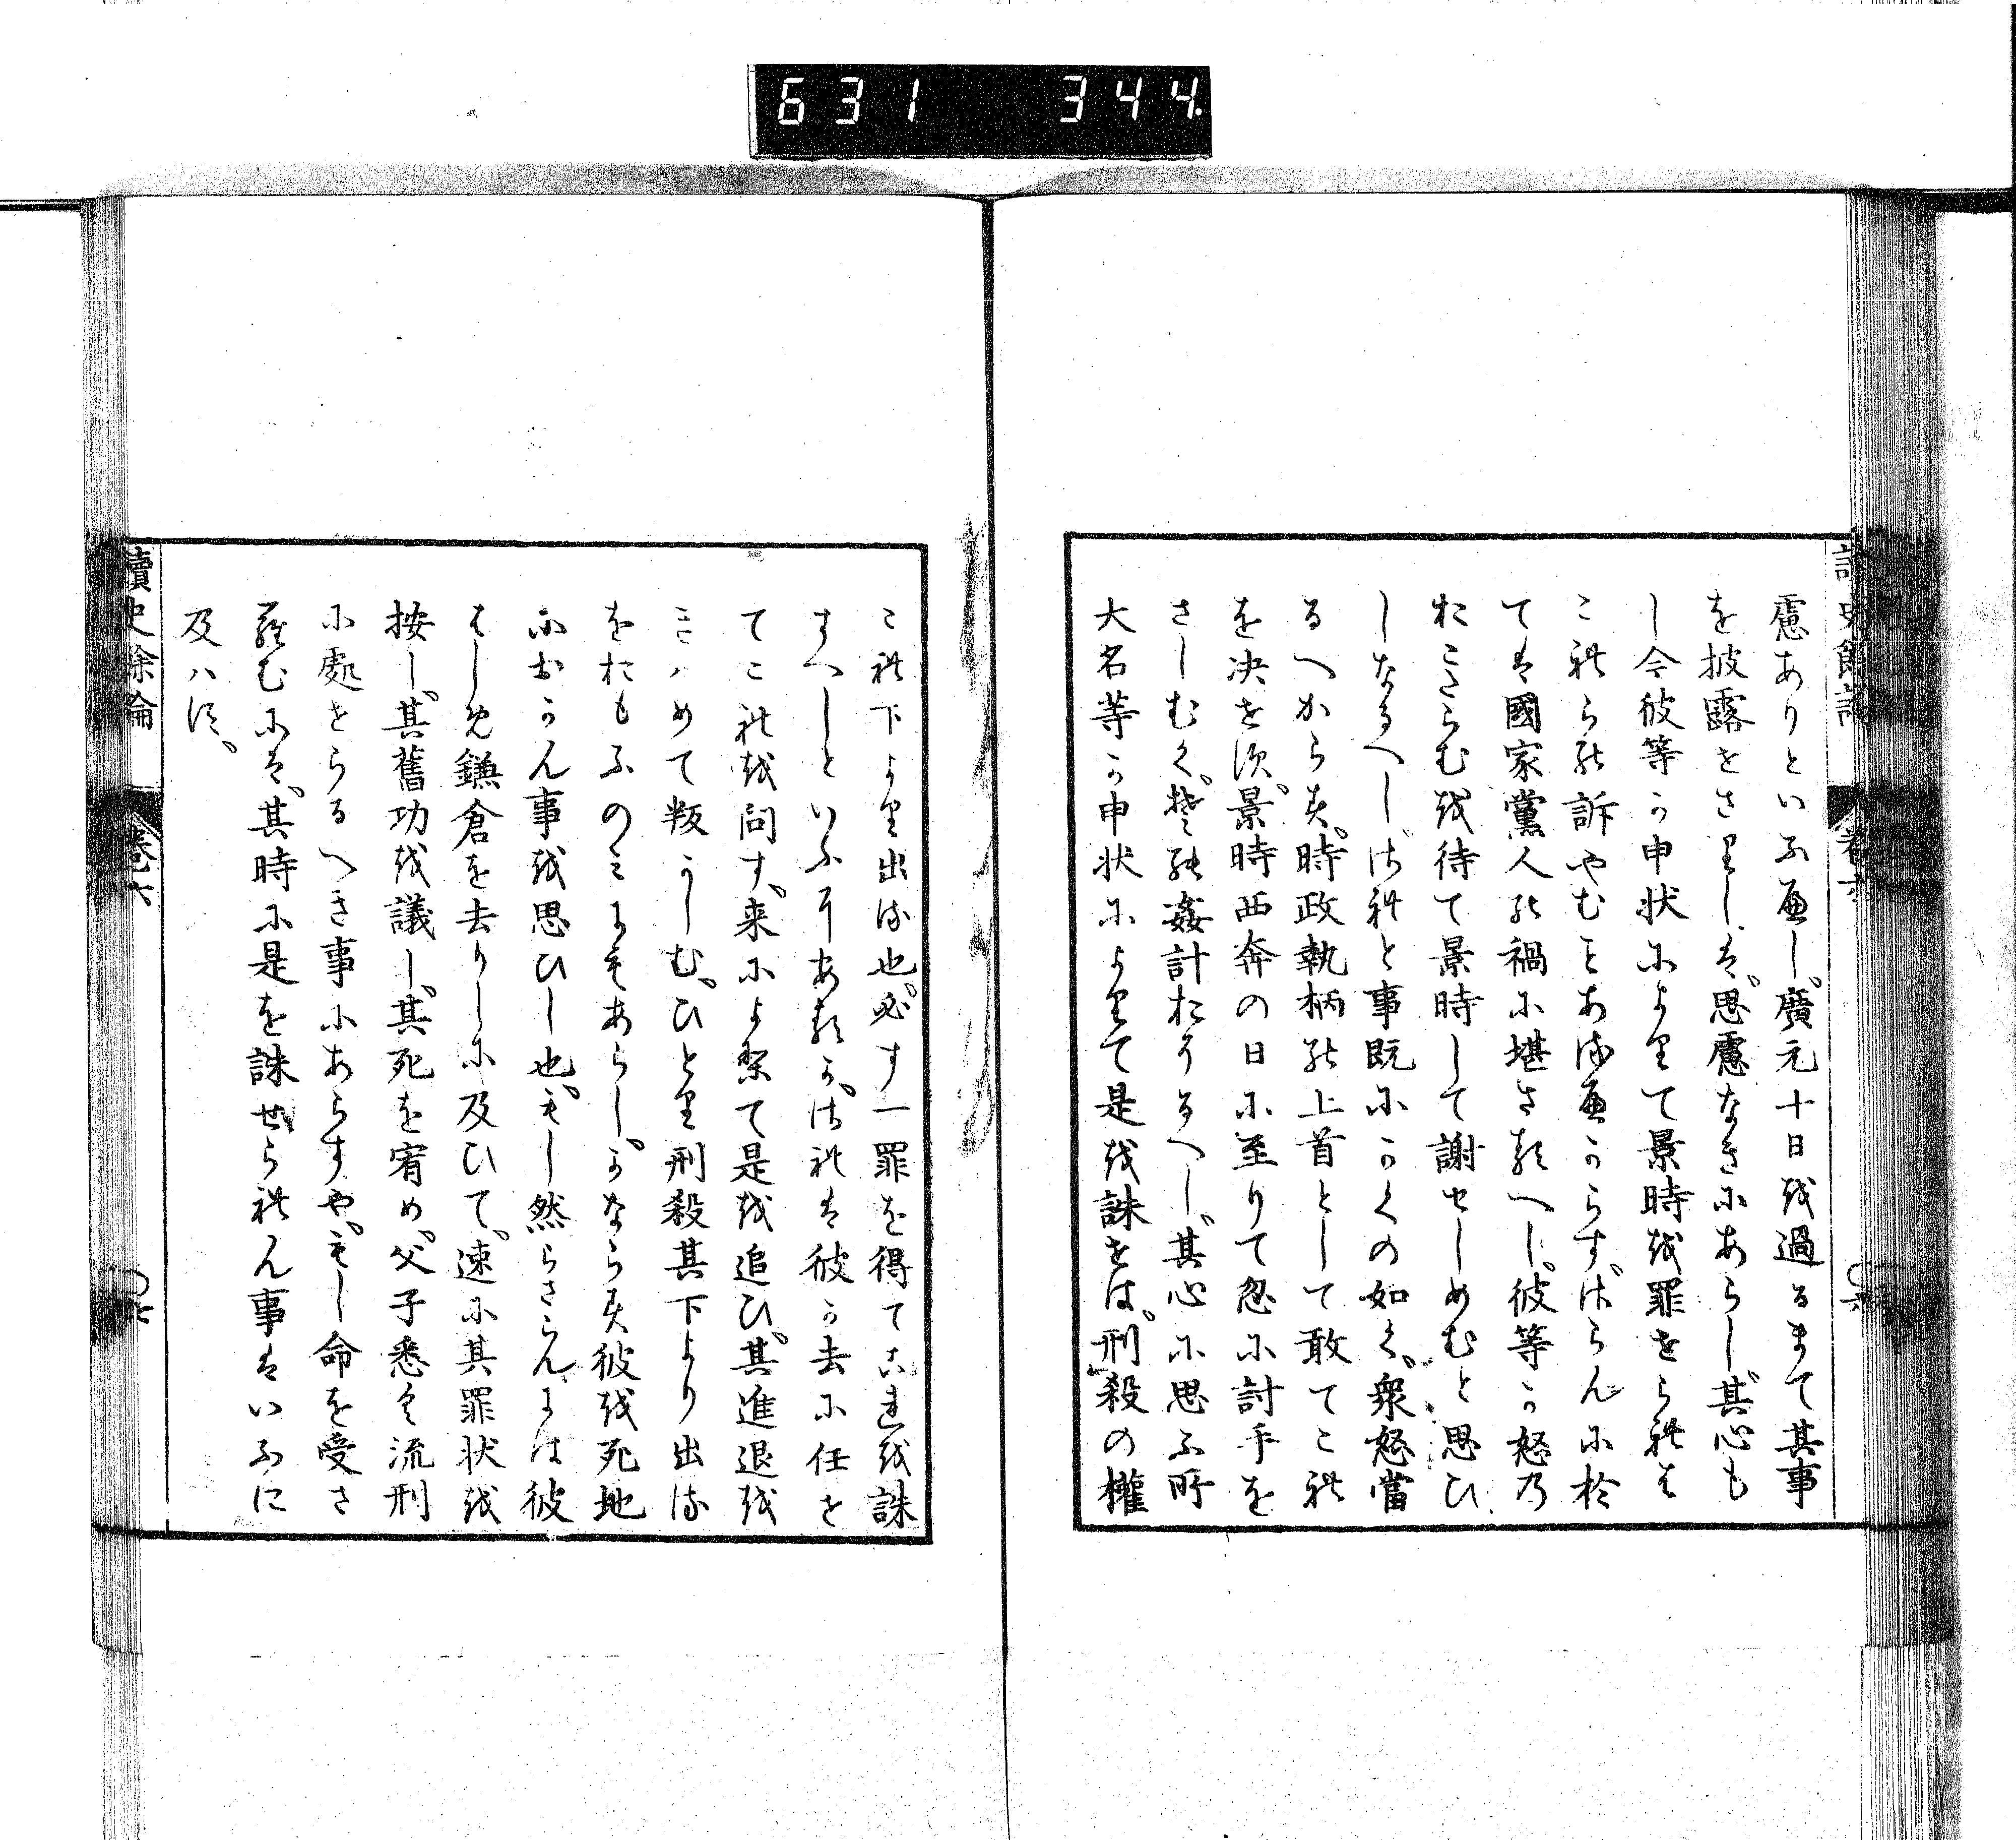 631 344
讀史餘論 巻六
慮ありといふへし、廣元十日を過るまて其事
を披露せさりしは、思慮なきにあらし、其心も
し今彼等か申状によりて景時を罪せられは
これらの訴やむことあるへからす、さらんに於
ては國家黨人の禍に堪さるへし、彼等か怒の
おこたらむを待て景時して謝せしめむと思ひ
しなるへし、されと事既にかくの如く、衆怒當
るへからす、時政執柄の上首として敢てこれ
を决せす、景時西奔の日に至りて忽に討手を
さしむく、其の姦計おそるへし、其心に思ふ所
大名等か申状によりて是を誅せは、刑殺の權
これ下より出る也、必す一罪を得てこれを誅
すへしといふにあるか、されは彼か去に任せ
てこれを問す、来によりて是を追ひ、其進退を
きはめて叛かしむ、ひとり刑殺其下より出る
をおもふのみにもあらし、かならす彼を死地
におかん事を思ひし也、もし然らさらんには彼
はしめ鎌倉を去りしに及ひて、速に其罪状を
按し、其舊功を議し、其死を宥め、父子悉く流刑
に處せらるへき事にあらすや、もし命を受さ
らむには、其時に是を誅せられん事はいふに
及はす、
讀史餘論 巻六